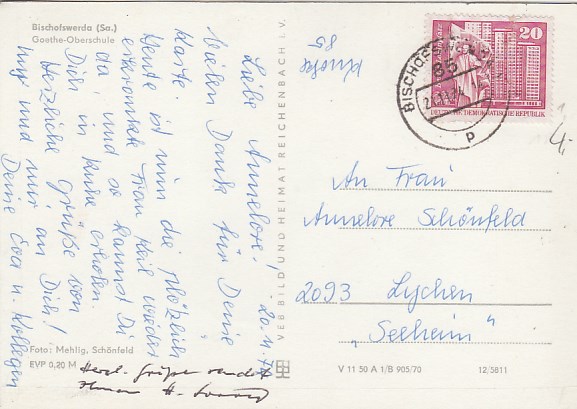 Bischofswerda (Sa.)
Goethe-Oberschule
20.11.74
Liebe Annelore!
Vielen Dank für Deine
Karte. Heute ist nun die plötzlich
erkrankte Frau Heil wieder
da, und so kannst Du
Dich in Ruhe erholen.
Herzliche Grüße von
und mir an Dich!
Deine Eva u. Kollegen
Herzl. Grüße sendet
Foto: Mehlig, Schönfeld
EVP 0,20 M
VEB BILD UND HEIMAT REICHENBACH I. V.
85
20
DEUTSCHE DEMOKRATISCHE REPUBLIK
BISCHOFSWERDA
85
p
4,-
An Frau
Annelore Schönfeld
2093 Lychen
„Seeheim"
V 11 50 A 1/B 905/70 12/5811